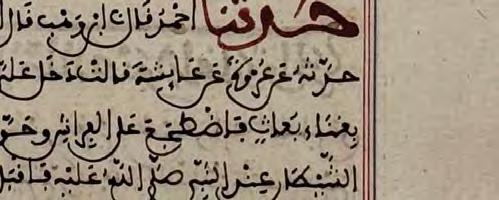 حدثنا احمد قال ابن وهب قال
حدثه عن عروة عن عايشة قالت دخل علي
بغناء بعاث فاضطجع على الفراش وحو
الشيطان عند النبي صلى الله عليه فاقبل